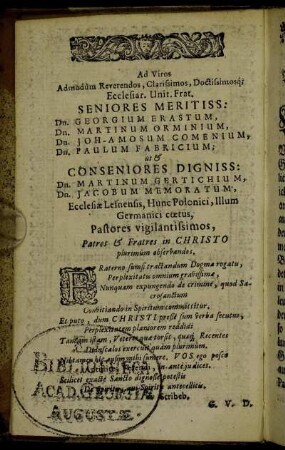 Ad Viros
Admodùm Reverendos, Clarissimos, Doctissimosq;
Ecclesiar. Unit. Frat.
SENIORES MERITISS:
Dn. GEORGIUM ERASTUM,
Dn. MARTINUM ORMINIUM,
Dn. JOH-AMOSUM COMENIUM,
Dn. PAULUM FABRICIUM;
ut &
CONSENIORES DIGNISS:
Dn. MARTINUM GERTICHIUM,
Dn. JACOBUM MEMORATUM,
Ecclesiæ Lesnensis, Hunc Polonici, Illum
Germanici cœtus,
Pastores vigilantissimos,
Patres & Fratres in CHRISTO
plurimùm observandos,
FRaternò sumsi tractandum Dogma rogatu,
Perplexitatu omnium gravissimæ,
Nunquam expungendo de crimine, quod Sa-
crosanctum
Convitiando in Spiritum committitur,
Et puto, dum CHRISTI presse sum verba secutus,
Perplexitatem planiorem reddidi
Tantam istam, Veteres quæ torsit, quæq; Recentes
Didascalos exercuit, quàm plurimùm.
sumere. VOS ego posco
in antè judices.
Scilicet exactè Sancto dignosse potestis
De Spiritu, qui Spiritu antecellitis.
Scribeb.
G. V. D.
BIBLIOTHECA
ACAD. GEORGIÆ
AUGUSTÆ.